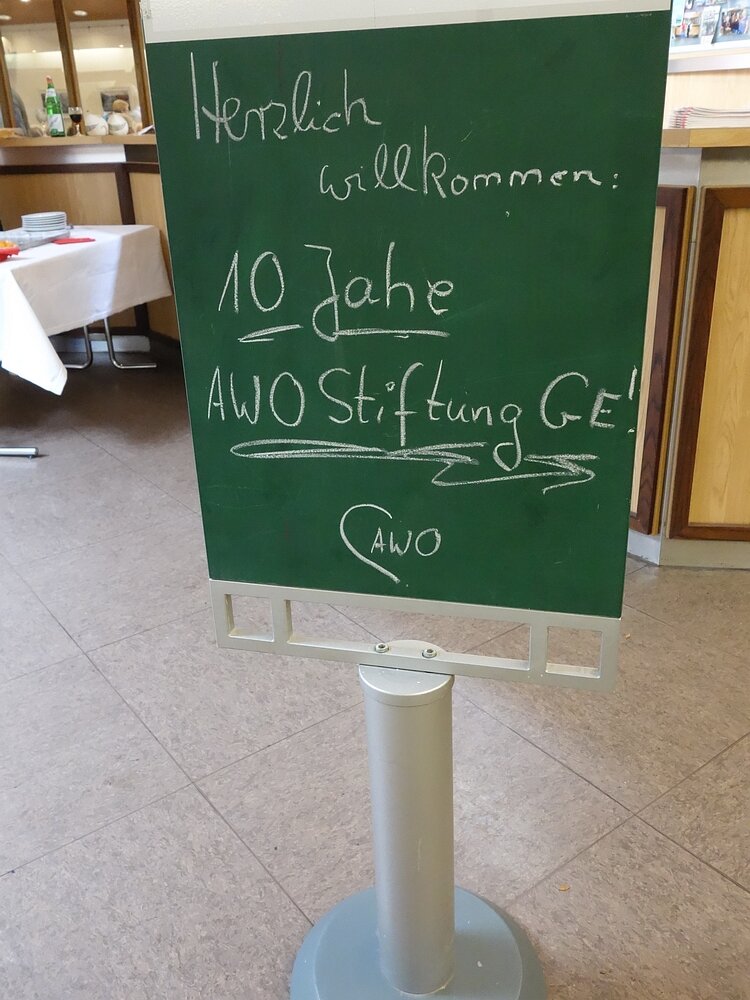 Herzlich
willkommen:
10 Jahe
AWO Stiftung GE!
AWO